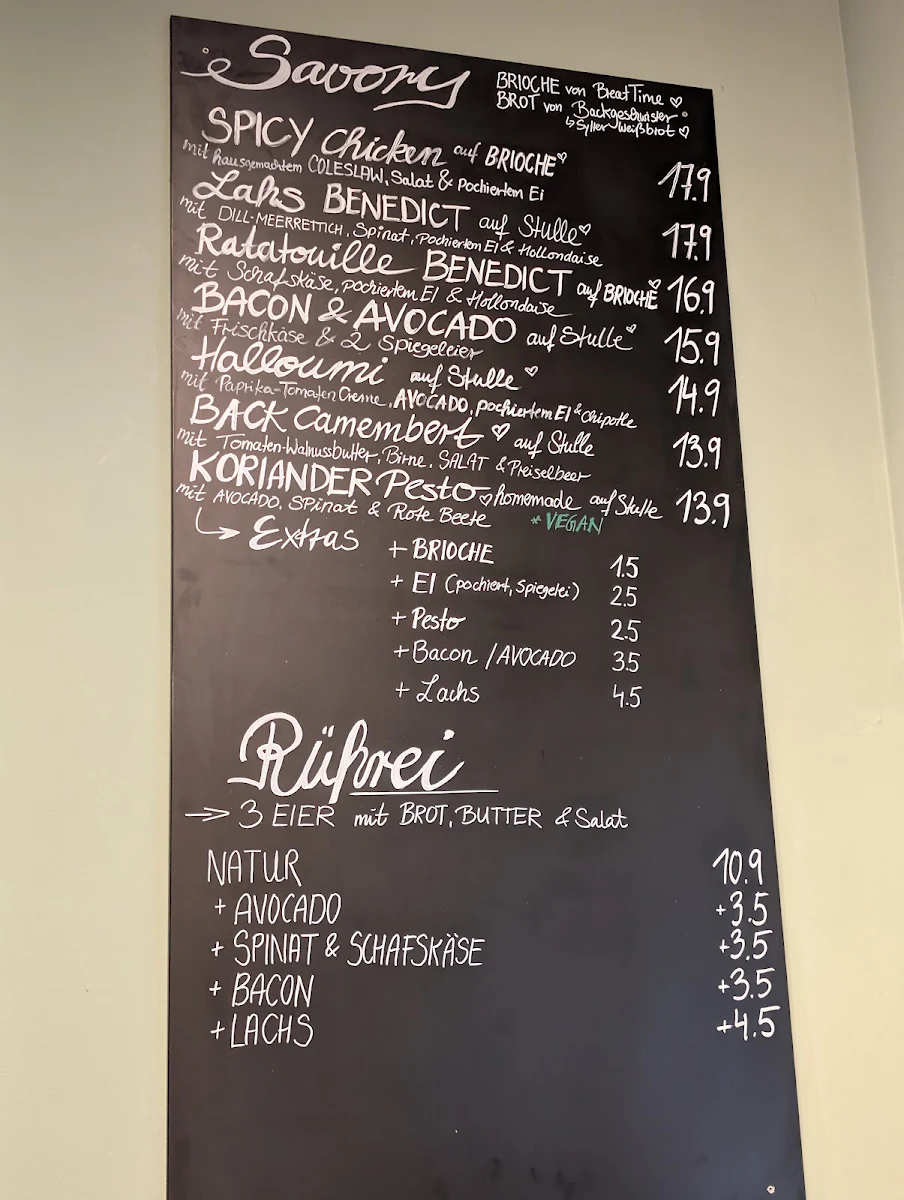 Savory
BRIOCHE von BreatTime ♡
BROT von Backgeschwister
↳ Sylter Weißbrot ♡
SPICY Chicken auf BRIOCHE♡ 17.9
mit hausgemachtem COLESLAW, Salat & pochiertem Ei
Lahs BENEDICT auf Stulle♡ 17.9
mit DILL-MEERRETTICH, Spinat, pochiertem EI & Hollondaise
Ratatouille BENEDICT auf BRIOCHE♡ 16.9
mit Schafskäse, pochiertem EI & Hollondaise
BACON & AVOCADO auf Stulle♡ 15.9
mit Frischkäse & 2 Spiegeleier
Halloumi auf Stulle ♡ 14.9
mit Paprika-Tomaten Creme, AVOCADO, pochiertem EI & Chipotle
BACK Camembert ♡ auf Stulle 13.9
mit Tomaten-Walnussbutter, Birne, SALAT & Preiselbeer
KORIANDER Pesto ♡ homemade auf Stulle 13.9
mit AVOCADO, SPinat & Rote Beete *VEGAN
↳ Extras + BRIOCHE 1.5
+ EI (pochiert, Spiegelei) 2.5
+ Pesto 2.5
+ Bacon / AVOCADO 3.5
+ Lachs 4.5
Rührei
→ 3 EIER mit BROT, BUTTER & Salat
NATUR 10.9
+ AVOCADO +3.5
+ SPINAT & SCHAFSKÄSE +3.5
+ BACON +3.5
+ LACHS +4.5